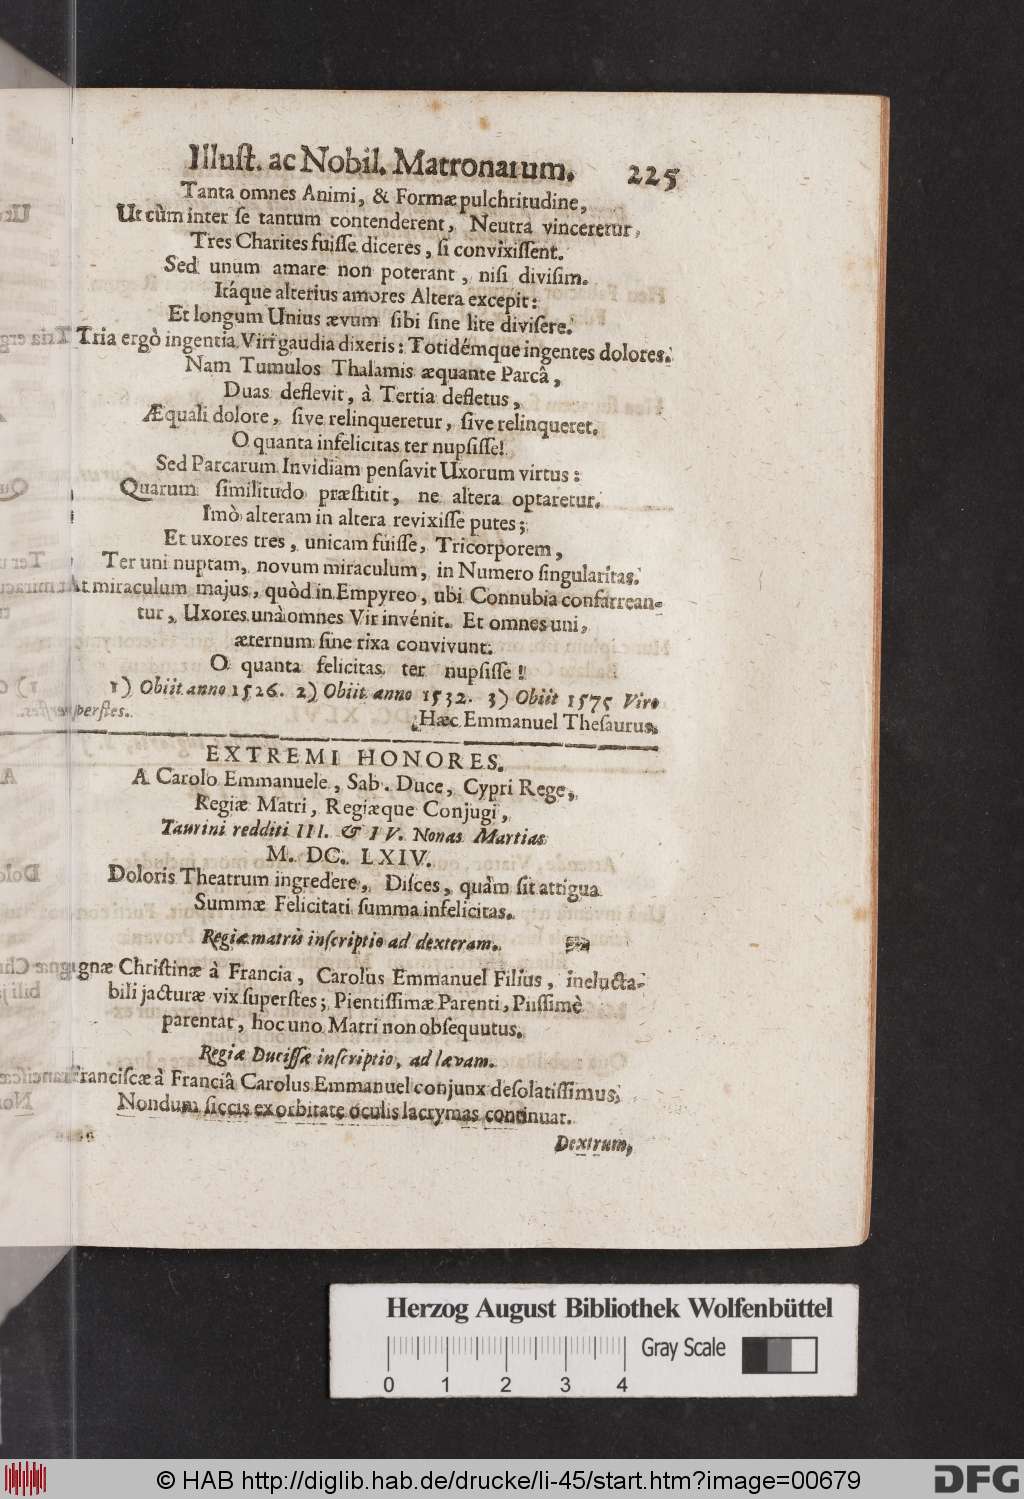 Illust. ac Nobil. Matronarum. 225
Tanta omnes Animi, & Formæ pulchritudine,
Ut cùm inter se tantum contenderent, Neutra vinceretur,
Tres Charites fuisse diceres, si convixissent.
Sed unum amare non poterant, nisi divisim.
Itáque alterius amores Altera excepit:
Et longum Unius ævum sibi sine lite divisere.
Tria ergò ingentia Viri gaudia dixeris: Totidémque ingentes dolores.
Nam Tumulos Thalamis æquante Parcâ,
Duas deflevit, à Tertia defletus,
Æquali dolore, sive relinqueretur, sive relinqueret.
O quanta infelicitas ter nupsisse!
Sed Parcarum Invidiam pensavit Uxorum virtus:
Quarum similitudo præstitit, ne altera optaretur.
Imò alteram in altera revixisse putes;
Et uxores tres, unicam fuisse, Tricorporem,
Ter uni nuptam, novum miraculum, in Numero singularitas.
At miraculum majus, quòd in Empyreo, ubi Connubia confarrean-
tur, Uxores unà omnes Vir invénit. Et omnes uni,
æternum sine rixa convivunt.
O quanta felicitas ter nupsisse!
1) Obiit anno 1526. 2) Obiit anno 1532. 3) Obiit 1575 Viro
superstes.
Hæc Emmanuel Thesaurus.
EXTREMI HONORES.
A Carolo Emmanuele, Sab. Duce, Cypri Rege,
Regiæ Matri, Regiæque Conjugi,
Taurini redditi III. & IV. Nonas Martias
M. DC. LXIV.
Doloris Theatrum ingredere, Disces, quàm sit attigua
Summæ Felicitati summa infelicitas.
Regiæ matris inscriptio ad dexteram.
gnæ Christinæ à Francia, Carolus Emmanuel Filius, inelucta-
bili jacturæ vix superstes; Pientissimæ Parenti, Piissimè
parentat, hoc uno Matri non obsequutus.
Regiæ Ducissæ inscriptio, ad lævam.
Franciscæ à Franciâ Carolus Emmanuel conjunx desolatissimus,
Nondum siccis exorbitate oculis lacrymas continuat.
Dextrum,
Herzog August Bibliothek Wolfenbüttel
Gray Scale
0 1 2 3 4
© HAB http://diglib.hab.de/drucke/li-45/start.htm?image=00679
DFG